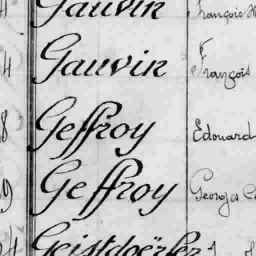 Gauvin François
4 Gauvin François
8 Geffroy Edouard
9 Geffroy Georges
4 Geistdoërfer